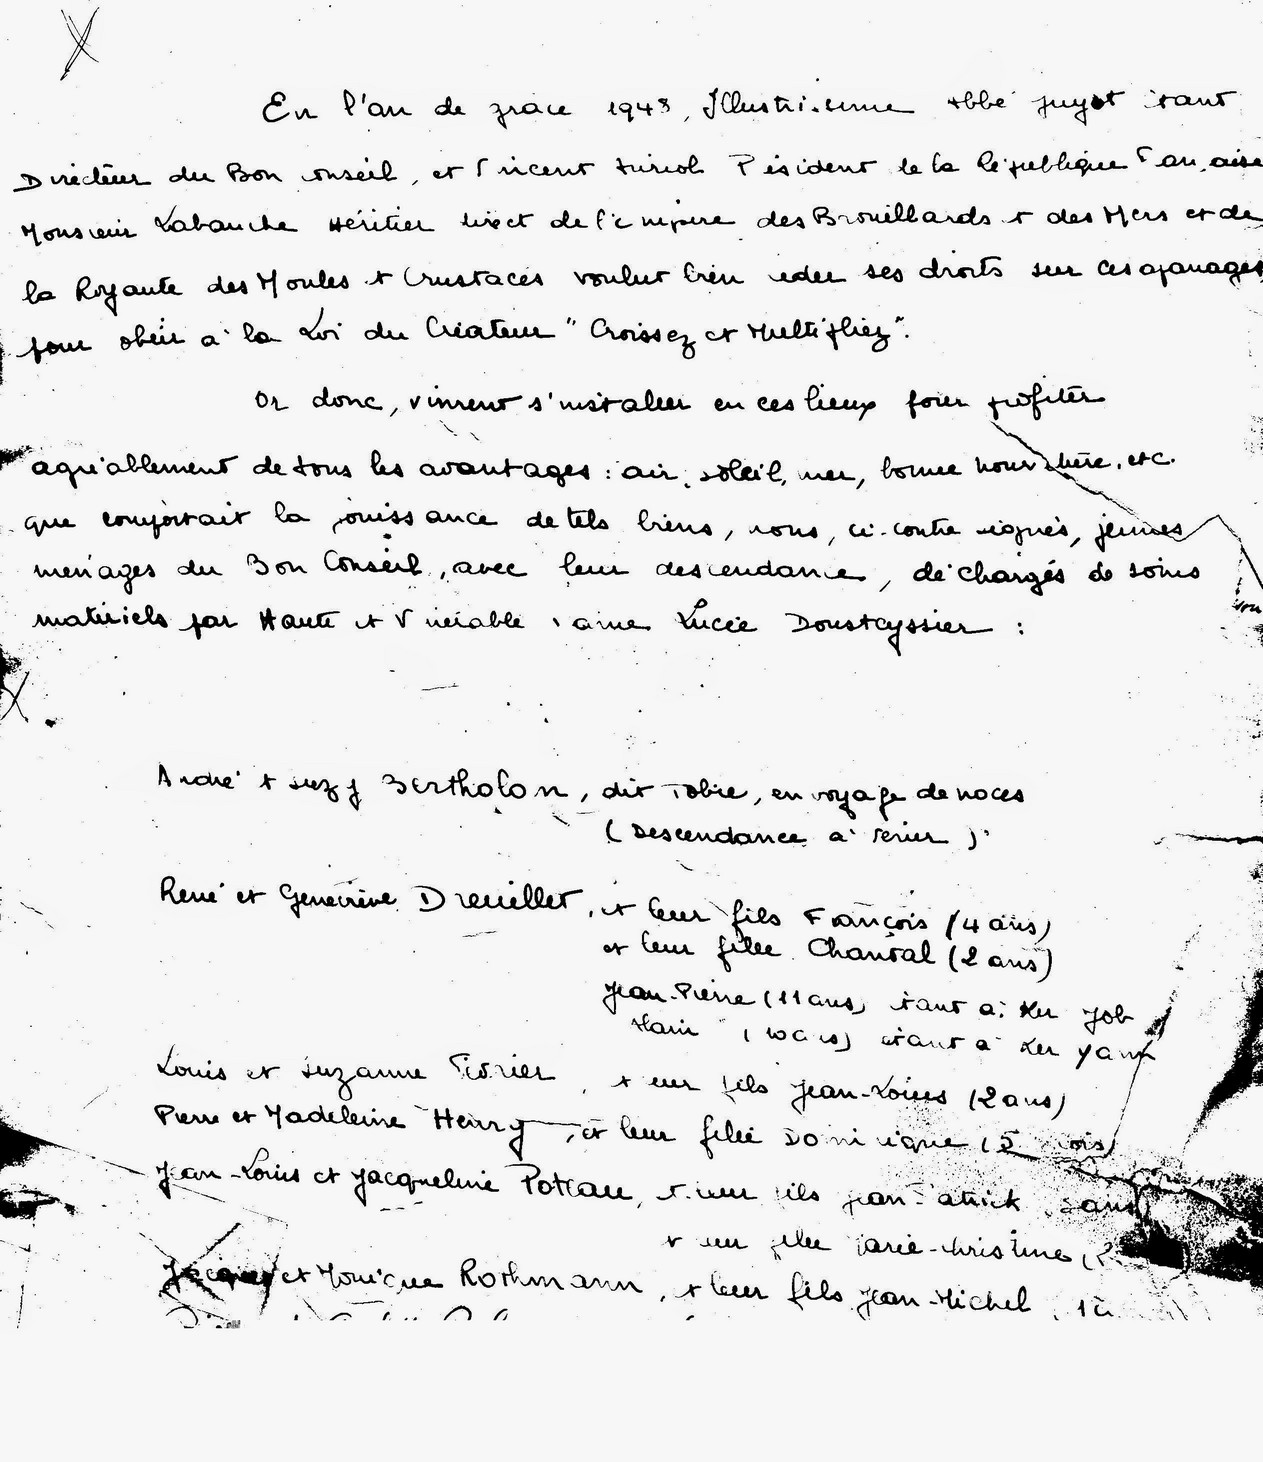 En l'an de grace 1948, Illustrissime Abbé Guyot étant
Directeur du Bon Conseil, et Vincent Auriol Président de la République Française
Monsieur Labauche Héritier direct de l'Empire des Brouillards et des Mers et de
la Royauté des Moules et Crustacés voulut bien céder ses droits sur ces apanages
pour obéir à la Loi du Créateur "Croissez et Multipliez".
Or donc, vinrent s'installer en ces lieux pour profiter
agréablement de tous les avantages : air, soleil, mer, bonne nourriture, etc.
que comportait la jouissance de tels biens, nous, ci-contre signés, jeunes
ménages du Bon Conseil, avec leur descendance, déchargés de soins
matériels par Haute et Vénérable Dame Lucie Dousteyssier :
André et Suzy Bertholon, dit Tobie, en voyage de noces
(Descendance à venir)
René et Geneviève Dreuillet, et leur fils François (4 ans)
et leur fille Chantal (2 ans)
Jean-Pierre (11 ans) étant à Ker Job
Alain (10 ans) étant à Ker Yann
Louis et Suzanne et leur fils Jean-Louis (2 ans)
Pierre et Madeleine Henry, et leur fille Dominique (5 mois)
Jean-Louis et Jacqueline Poteau, et leur fils Jean-Patrick ans)
et leur fille Marie-Christine (2
Jacques et Monique Rothmann, et leur fils Jean-Michel, 1